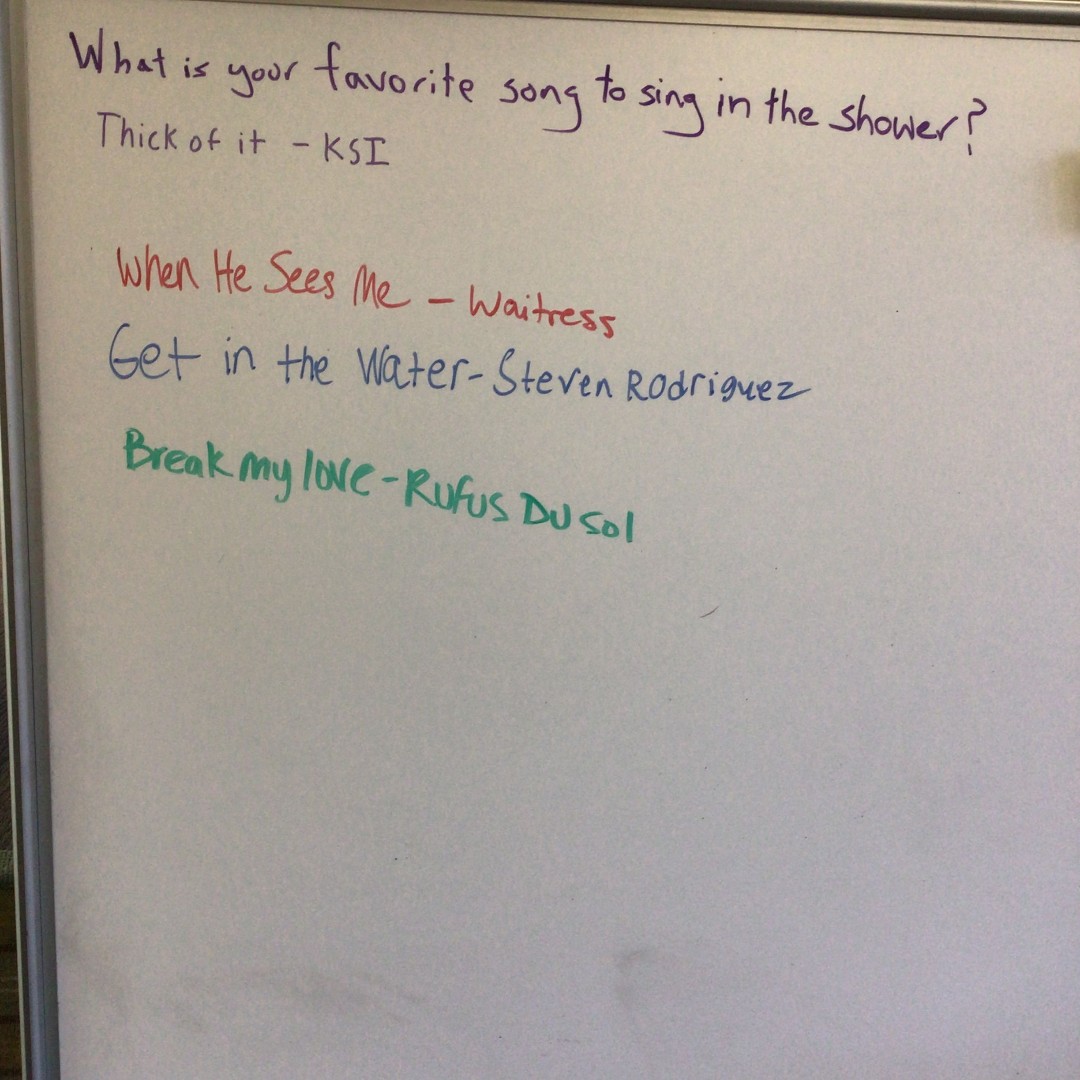 What is your favorite song to sing in the shower?
Thick of it - KSI
When He Sees Me - Waitress
Get in the Water - Steven Rodriguez
Break my love - Rufus Du Sol